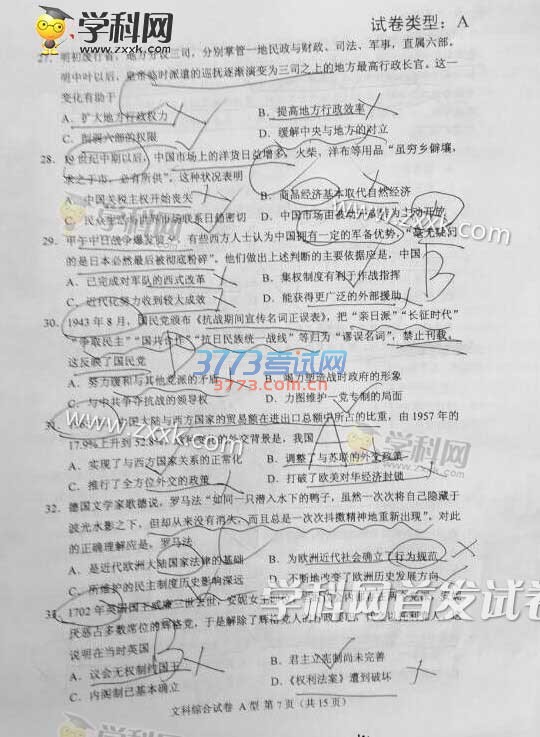 学科网
www.zxxk.com
学科网
www.zxxk.com
试卷类型：A
27. 明初废行省，地方分设三司，分别掌管一地民政与财政、司法、军事，直属六部。
明中叶以后，皇帝临时派遣的巡抚逐渐演变为三司之上的地方最高行政长官。这一
变化有助于
A．扩大地方行政权力 B．提高地方行政效率
C．削弱六部的权限 D．缓解中央与地方的对立
28. 19世纪中期以后，中国市场上的洋货日益增多，火柴、洋布等用品“虽穷乡僻壤，
求之于市，必有所供”。这种状况表明
A．中国关税主权开始丧失 B．商品经济基本取代自然经济
C．民众生活与世界市场联系日趋密切 D．中国市场由被动开放转为主动开放
29. 甲午中日战争爆发前夕，有些西方人士认为中国拥有一定的军备优势，“毫无疑问
的是日本必然最后被彻底粉碎”。他们做出上述判断的主要依据应是，中国
A．已完成对军队的西式改革 B．集权制度有利于作战指挥
C．近代化努力收到较大成效 D．能获得更广泛的外部援助
B
30. 1943年8月，国民党颁布《抗战期间宣传名词正误表》，把“亲日派”“长征时代”
“争取民主”“国共合作”“抗日民族统一战线”等归为“谬误名词”，禁止刊载。
这反映了国民党
A．努力缓和与其他党派的矛盾 B．竭力塑造战时政府的形象
C．与中共争夺抗战的领导权 D．力图维护一党专制的局面
3773考试网
3773.com.cn
31. 中国大陆与西方国家的贸易额在进出口总额中所占的比重，由1957年的
17.9%上升到52.8%
变化的外交背景是，我国
A．实现了与西方国家关系的正常化 B．调整了与苏联的外交政策
C．推行了全方位外交的政策 D．打破了欧美对华经济封锁
A
学科网
www.zxxk.com
32. 德国文学家歌德说，罗马法“如同一只潜入水下的鸭子，虽然一次次将自己隐藏于
波光水影之下，但却从来没有消失，而且总是一次次抖擞精神地重新出现”。对此
的正确理解应是，罗马法
A．是近代欧洲大陆国家法律的基础 B．为欧洲近代社会确立了行为规范
C．所维护的民主制度历史影响深远 D．不断地改变了欧洲历史发展方向
学科网首发试卷
33. 1702年英国国王威廉三世去世，安妮女王
厌恶占多数席位的辉格党，于是解除了辉格党人的行政
说明在当时英国
A．议会无权制约国王 B．君主立宪制尚未完善
C．内阁制已基本确立 D．《权利法案》遭到破坏
文科综合试卷 A型 第7页（共15页）